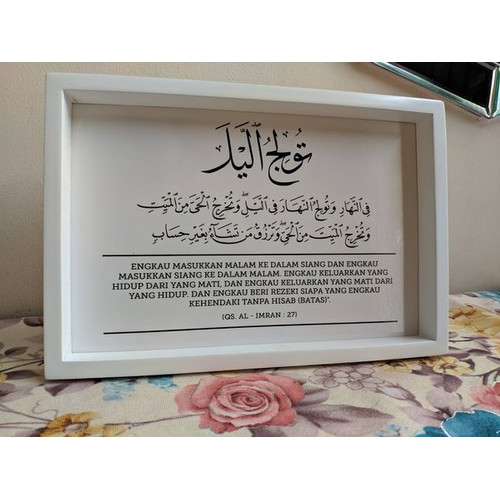 تُولِجُ ٱلَّيْلَ
فِي ٱلنَّهَارِ وَتُولِجُ ٱلنَّهَارَ فِي ٱلَّيْلِۖ وَتُخْرِجُ ٱلْحَىَّ مِنَ ٱلْمَيِّتِ
وَتُخْرِجُ ٱلْمَيِّتَ مِنَ ٱلْحَىِّۖ وَتَرْزُقُ مَن تَشَآءُ بِغَيْرِ حِسَابٍ
ENGKAU MASUKKAN MALAM KE DALAM SIANG DAN ENGKAU
MASUKKAN SIANG KE DALAM MALAM. ENGKAU KELUARKAN YANG
HIDUP DARI YANG MATI, DAN ENGKAU KELUARKAN YANG MATI DARI
YANG HIDUP. DAN ENGKAU BERI REZEKI SIAPA YANG ENGKAU
KEHENDAKI TANPA HISAB (BATAS)".
(QS. AL - IMRAN : 27)